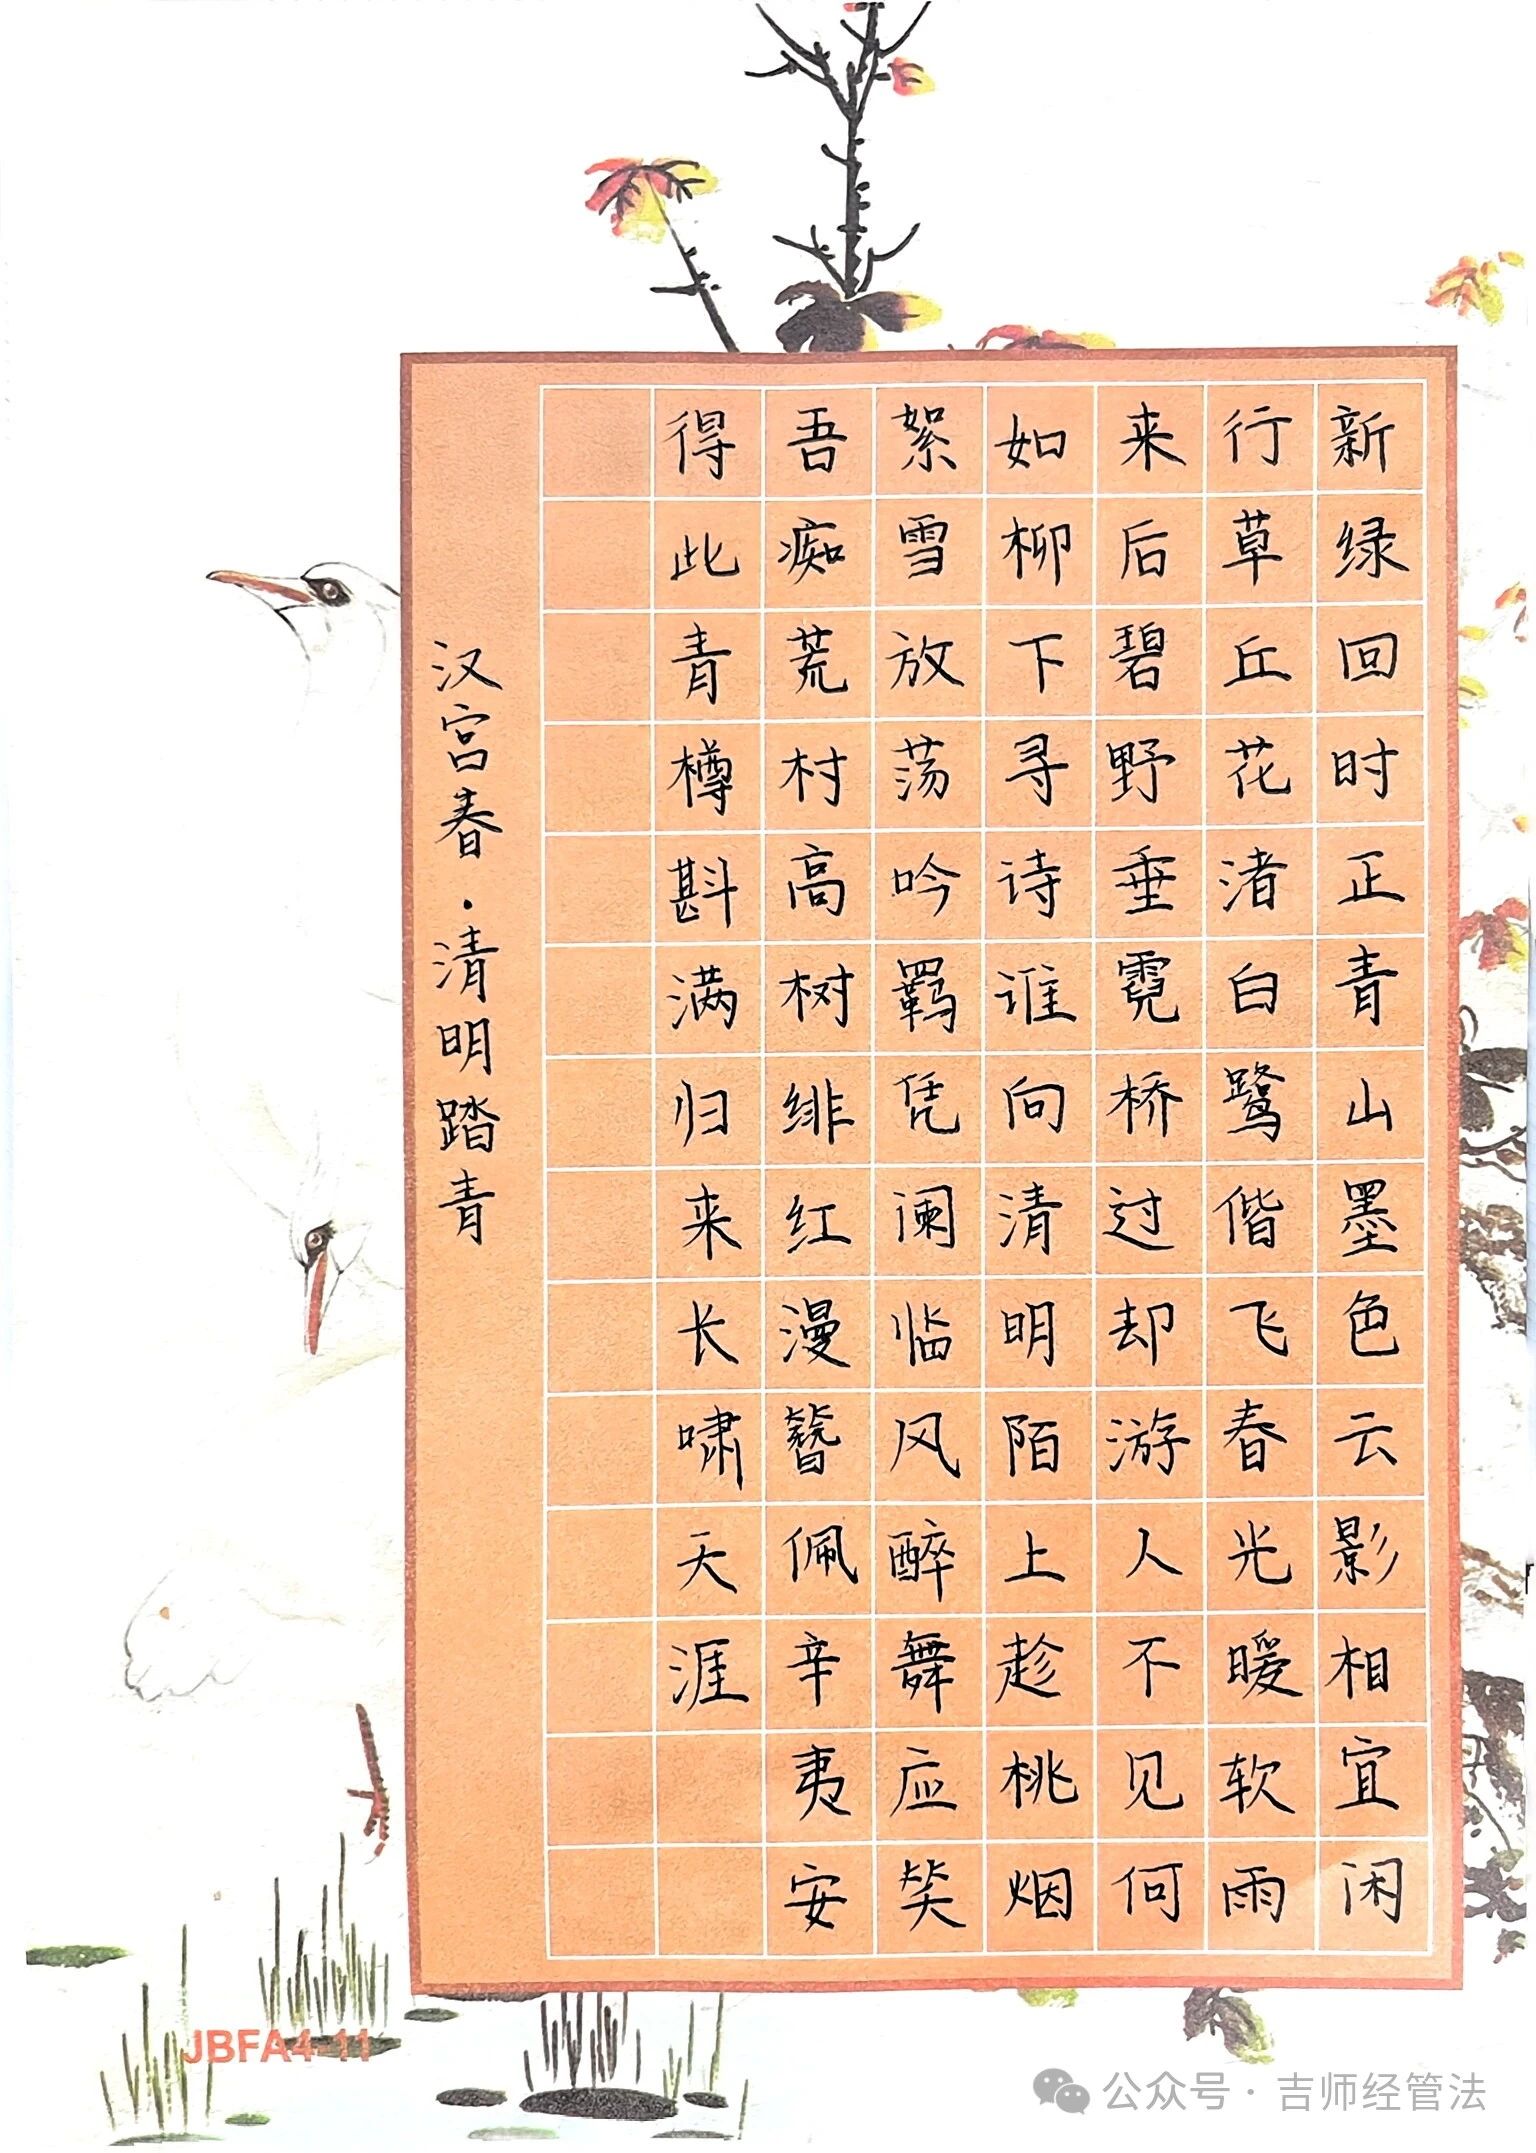 新绿回时正青山墨色云影相宜闲
行草丘花渚白鹭偕飞春光暖软雨
来后碧野垂霓桥过却游人不见何
如柳下寻诗谁向清明陌上趁桃烟
絮雪放荡吟羁凭阑临风醉舞应笑
吾痴荒村高树绯红漫簪佩辛夷安
得此青樽斟满归来长啸天涯
汉宫春·清明踏青
JBFA4-11
公众号·吉师经管法